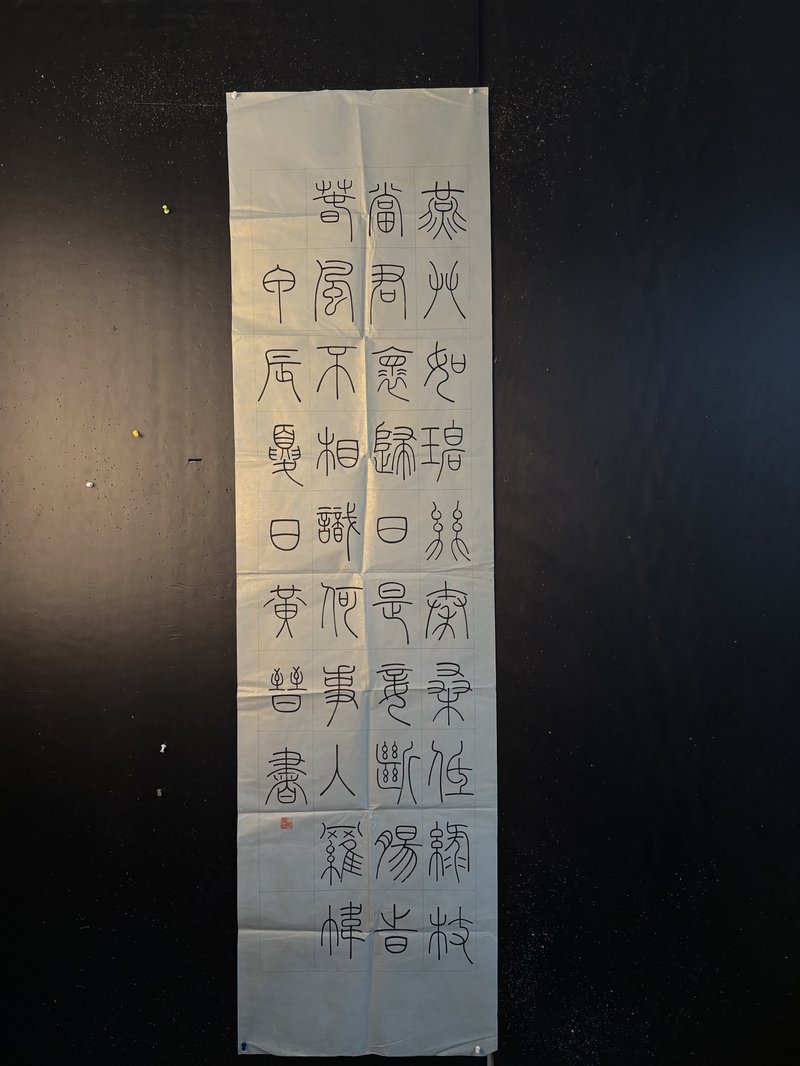 燕艸如碧絲秦桑低綠枝
當君褱歸日是妾斷腸旹
萅風不相識何事入羅幃
甲辰夏日黃晉書